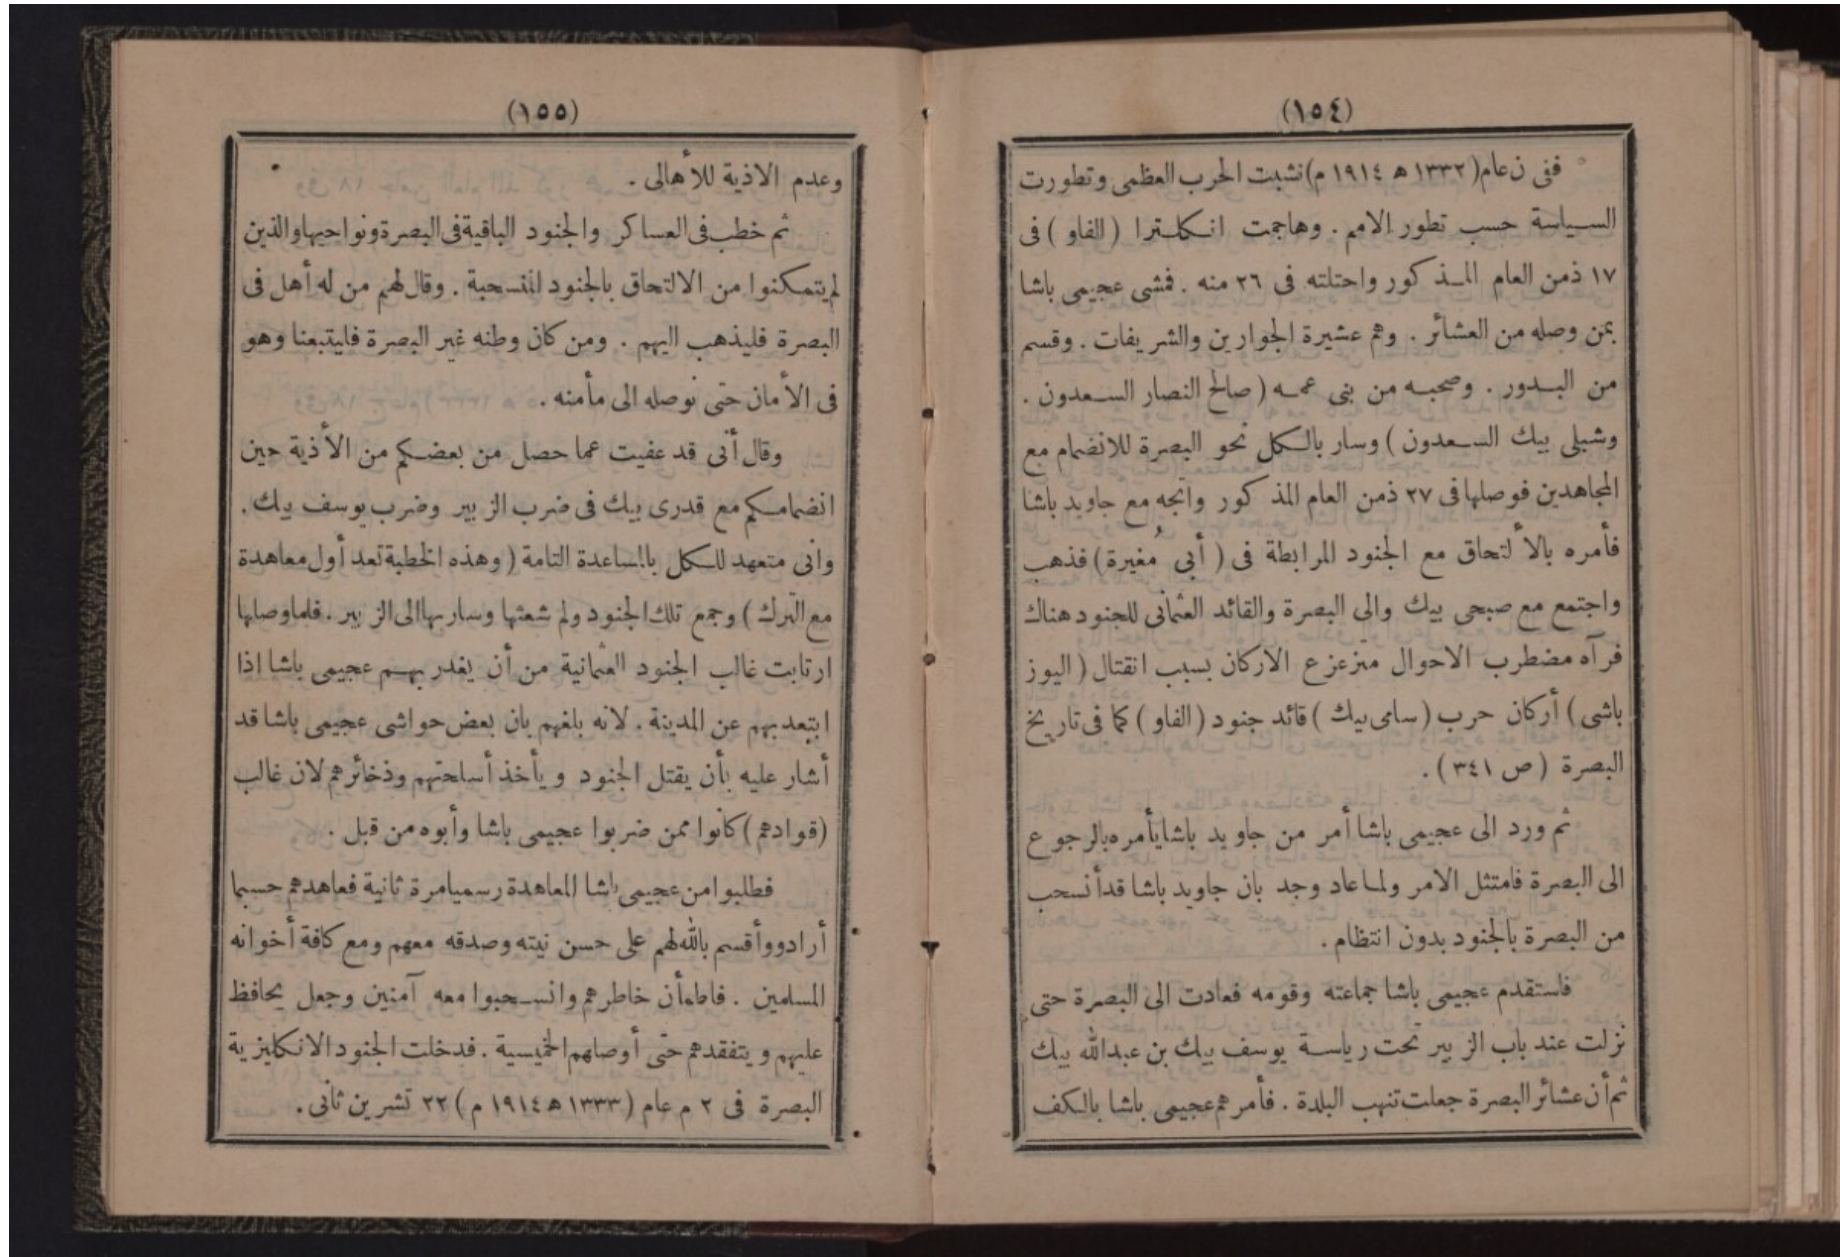 (١٥٤)
ففى ن عام (١٣٣٢ ھ ١٩١٤ م) نشبت الحرب العظمى وتطورت
السياسة حسب تطور الامم . وهاجمت انكلترا (الفاو) فى
١٧ ذ من العام المذكور واحتلته فى ٢٦ منه . فمشى عجيمى باشا
بمن وصله من العشائر . وهم عشيرة الجوارين والشريفات . وقسم
من البدور . وصحبه من بنى عمه (صالح النصار السعدون .
وشبلى بيك السعدون) وسار بالكل نحو البصرة للانضمام مع
المجاهدين فوصلها فى ٢٧ ذ من العام المذكور واتجه مع جاويد باشا
فأمره بالألتحاق مع الجنود المرابطة فى (أبى مُغيرة) فذهب
واجتمع مع صبحى بيك والى البصرة والقائد العثمانى للجنود هناك
فرآه مضطرب الاحوال متزعزع الاركان بسبب انقتال (اليوز
باشى) أركان حرب (سامى بيك) قائد جنود (الفاو) كما فى تاريخ
البصرة (ص ٣٤١) .
ثم ورد الى عجيمى باشا أمر من جاويد باشا يأمره بالرجوع
الى البصرة فامتثل الامر ولما عاد وجد بان جاويد باشا قد أنسحب
من البصرة بالجنود بدون انتظام .
فاستقدم عجيمى باشا جماعته وقومه فعادت الى البصرة حتى
نزلت عند باب الزبير تحت رياسة يوسف بيك بن عبدالله بيك
ثم أن عشائر البصرة جعلت تنهب البلدة . فأمرهم عجيمى باشا بالكف
(١٥٥)
وعدم الاذية للأهالى .
ثم خطب فى العساكر والجنود الباقية فى البصرة ونواحيها والذين
لم يتمكنوا من الالتحاق بالجنود المنسحبة . وقال لهم من له أهل فى
البصرة فليذهب اليهم . ومن كان وطنه غير البصرة فليتبعنا وهو
فى الأمان حتى نوصله الى مأمنه .
وقال أنى قد عفيت عما حصل من بعضكم من الأذية حين
انضمامكم مع قدرى بيك فى ضرب الزبير وضرب يوسف بيك .
وانى متعهد للكل بالمساعدة التامة (وهذه الخطبة تعد أول معاهدة
مع الترك) وجمع تلك الجنود ولم شعثها وسار بها الى الزبير . فلما وصلها
ارتابت غالب الجنود العثمانية من أن يغدر بهم عجيمى باشا اذا
ابتعد بهم عن المدينة . لانه بلغهم بان بعض حواشى عجيمى باشا قد
أشار عليه بأن يقتل الجنود ويأخذ أسلحتهم وذخائرهم لان غالب
(قوادهم) كانوا ممن ضربوا عجيمى باشا وأبوه من قبل .
فطلبوا من عجيمى باشا المعاهدة رسميا مرة ثانية فعاهدهم حسبما
أرادوو أقسم بالله لهم على حسن نيته وصدقه معهم ومع كافة أخوانه
المسلمين . فاطمأن خاطرهم وانسحبوا معه آمنين وجعل يحافظ
عليهم ويتفقدهم حتى أوصلهم الخميسية . فدخلت الجنود الانكليزية
البصرة فى ٢ م عام (١٣٣٣ ھ ١٩١٤ م) ٢٢ تشرين ثانى .